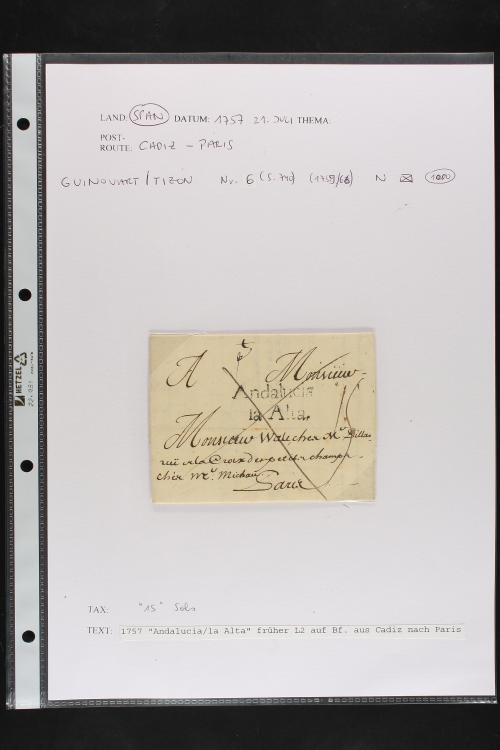 LAND: SPAN DATUM: 1757 21. JULI THEMA:
POST-
ROUTE: CADIZ - PARIS
GUINOVART/TIZON Nr. 6 (S. 740) N 1000
A Monsieur
Andalucia
la Alta
Monsieur Wale chez Mr
ruë de la Croix des petits champs
chéz Mr. Michau
Paris
HETZEL
TAX: "15" Sols
TEXT: 1757 "Andalucia/la Alta" früher L2 auf Bf. aus Cadiz nach Paris